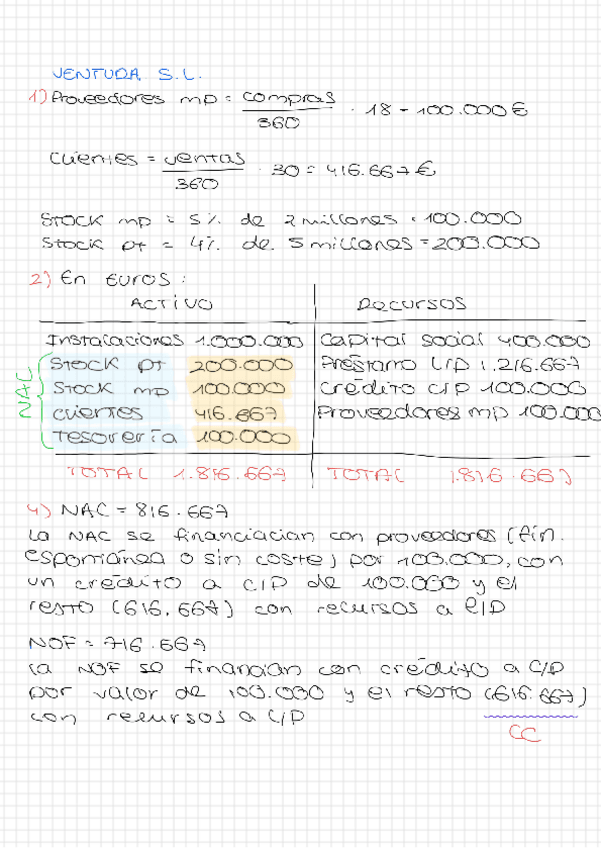 VENTUDA S.L.
1) Proveedores mp = compras / 360 · 18 = 100.000 €
Clientes = ventas / 360 · 30 = 416.667 €
Stock mp = 5% de 2 millones = 100.000
Stock pt = 4% de 5 millones = 200.000
2) En Euros:
ACTIVO RECURSOS
Instalaciones 1.000.000 Capital social 400.000
Stock PT 200.000 Préstamo L/P 1.216.667
Stock mp 100.000 Crédito C/P 100.000
clientes 416.667 Proveedores mp 100.000
Tesorería 100.000
NAC
TOTAL 1.816.667 TOTAL 1.816.667
4) NAC = 816.667
La NAC se financiacian con proveedores (fin.
espontánea o sin coste) por 100.000, con
un crédito a C/P de 100.000 y el
resto (616.667) con recursos a l/P
NOF = 716.667
La NOF se financian con crédito a C/P
por valor de 100.000 y el resto (616.667)
con recursos a L/P
CC